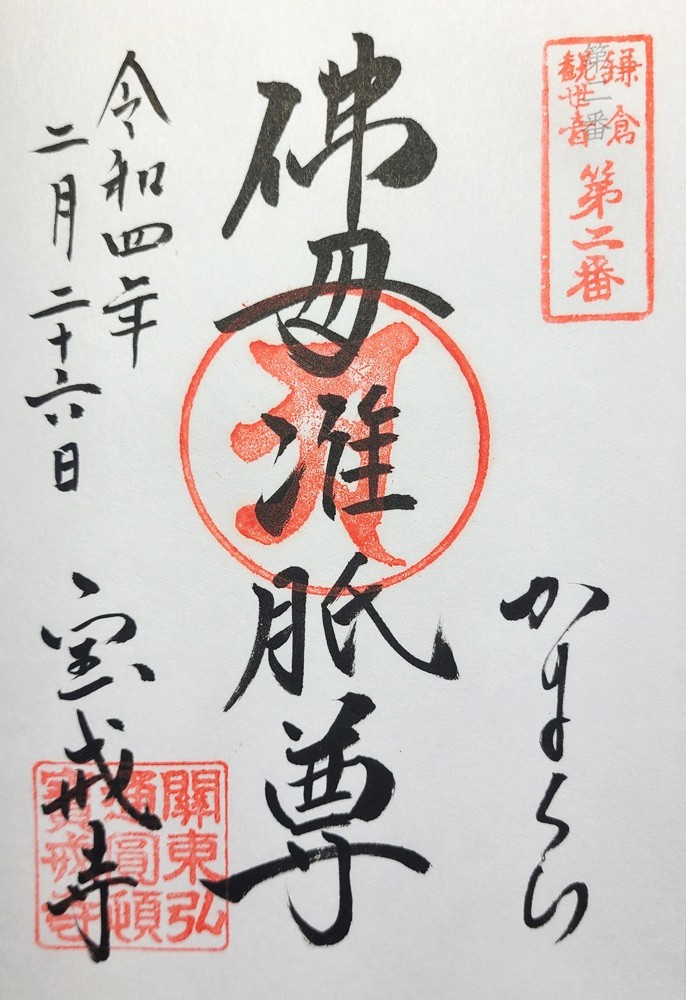 鎌倉
観世音
第二番
第二番
かまくら
佛母准胝尊
令和四年
二月二十六日
宝戒寺
關東弘
通圓頓
寳戒寺